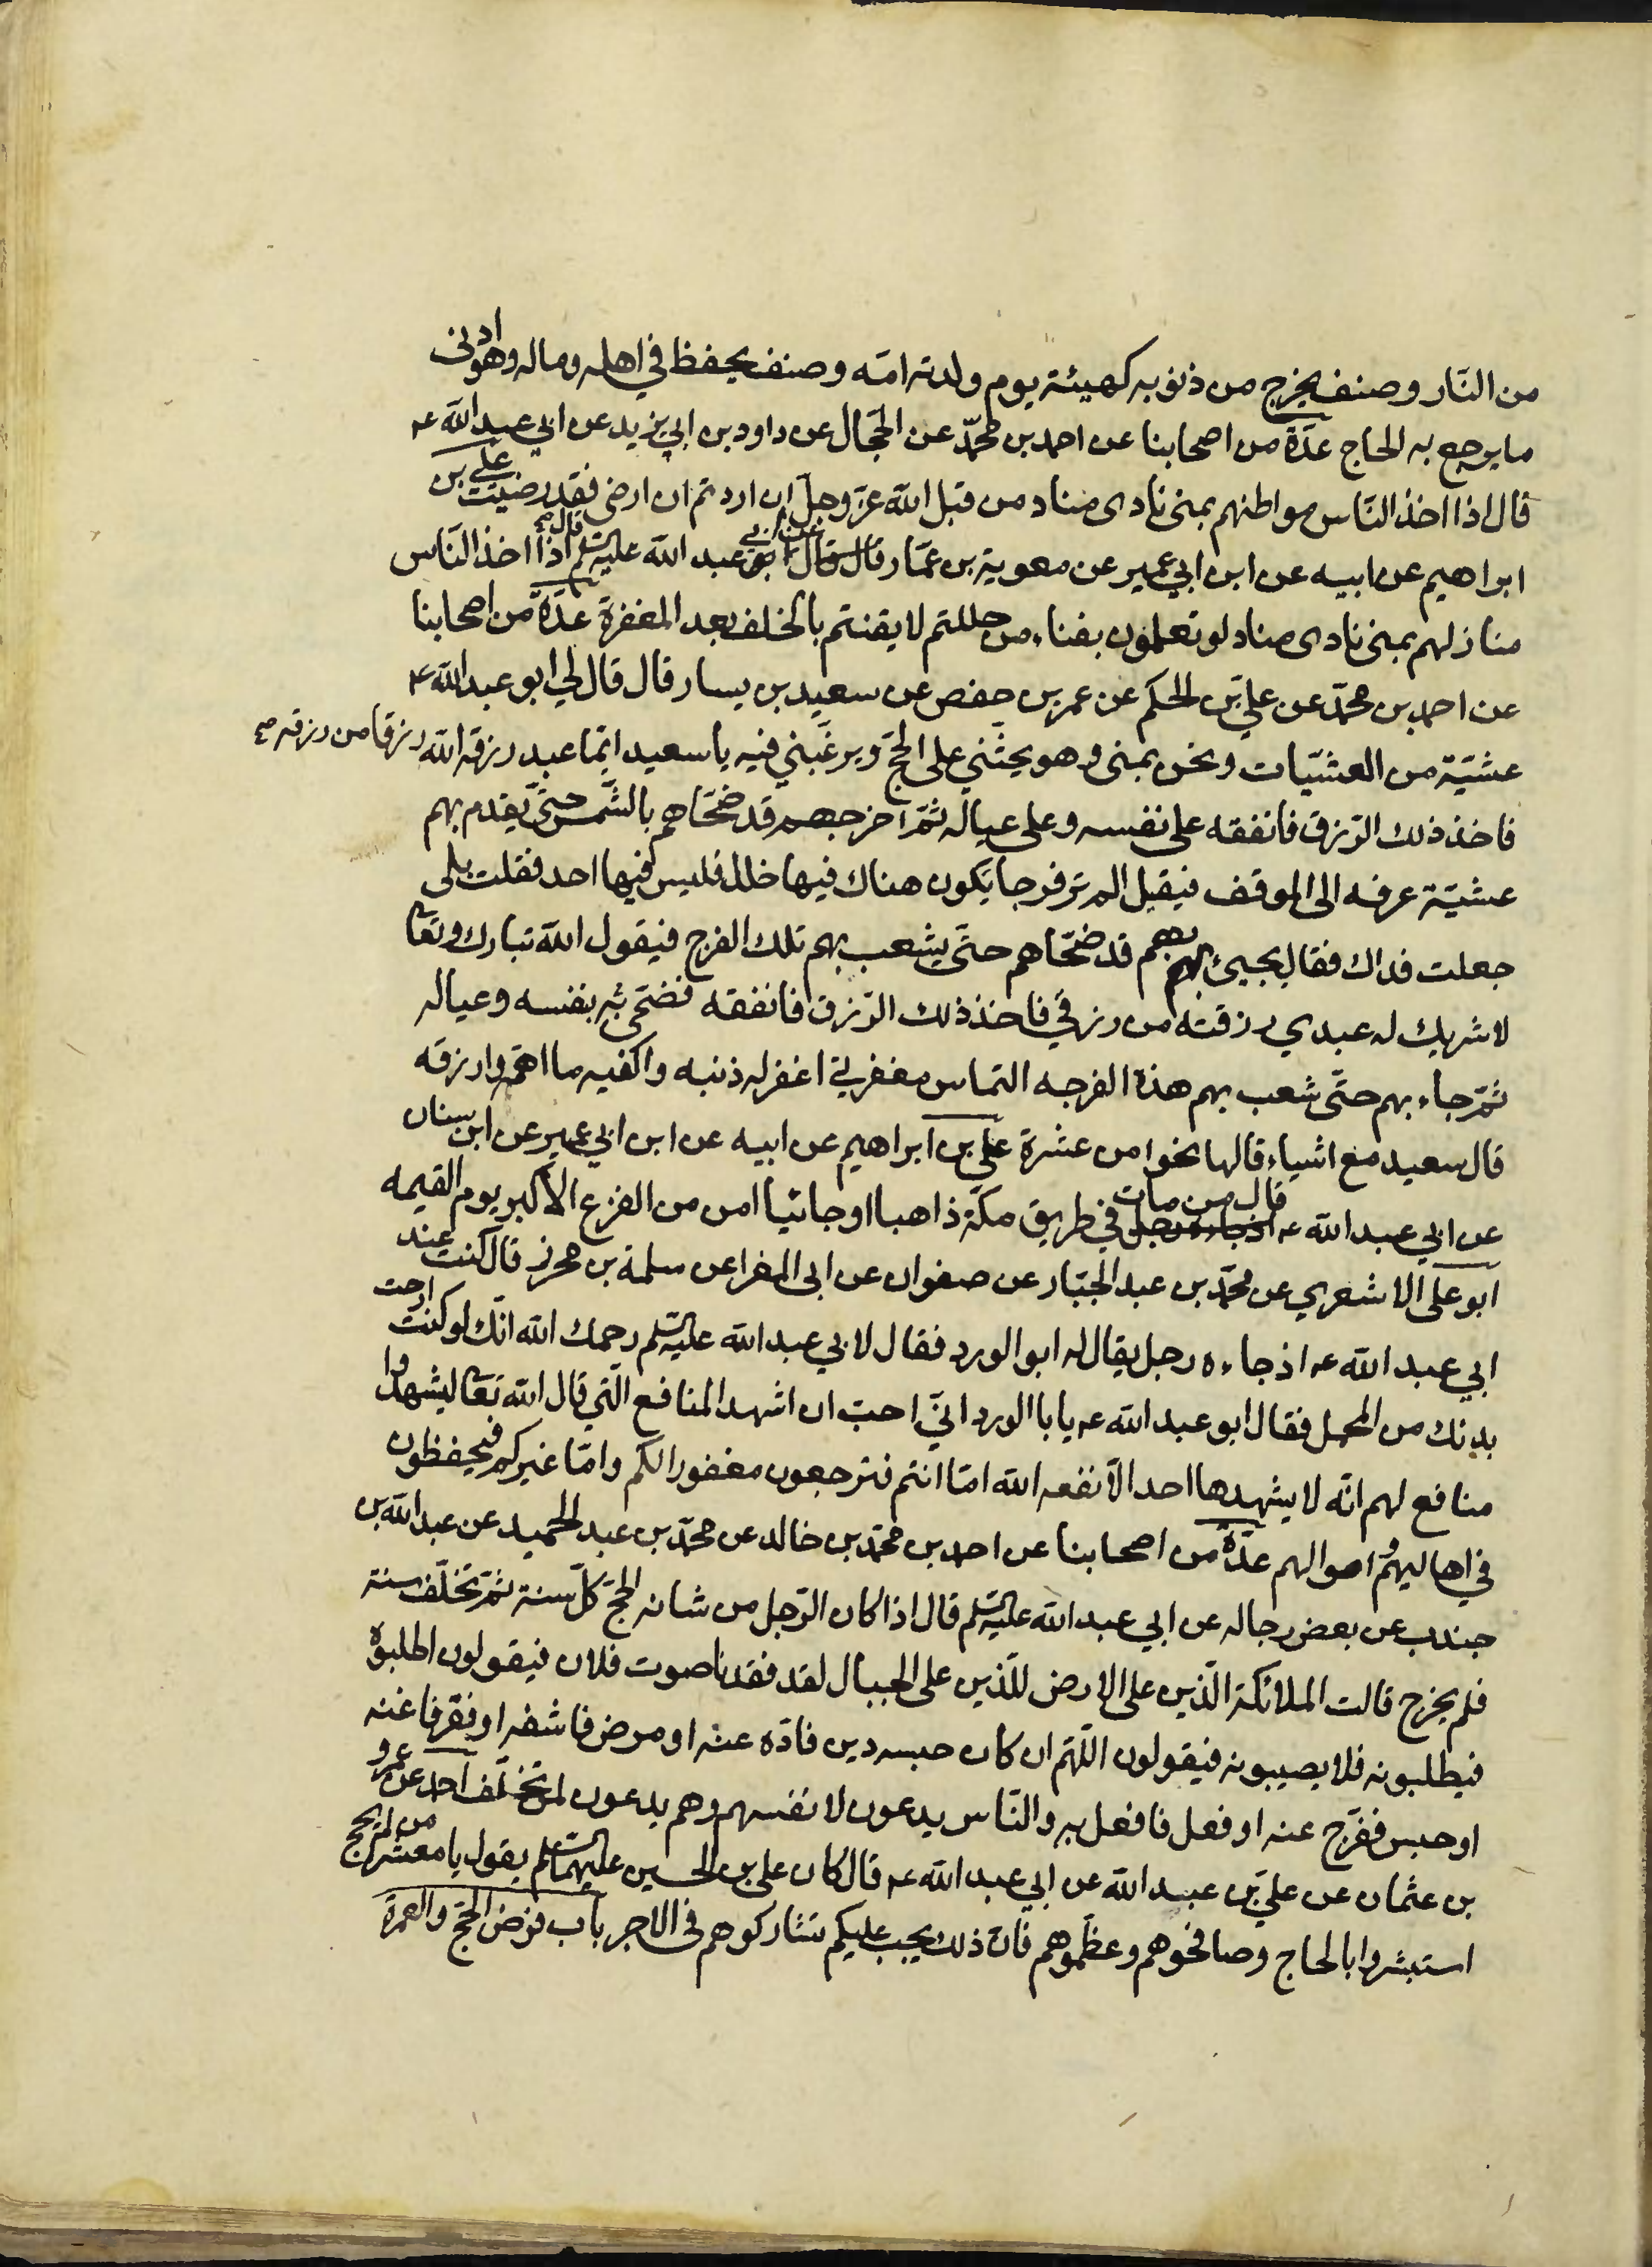 من النّار وصنف يخرج من ذنوبه كهيئة يوم ولدته امّه وصنف يحفظ في اهله وماله وهو ادنى
ما يرجع به الحاج عدّة من اصحابنا عن احمد بن محمّد عن الحجّال عن داود بن ابي يزيد عن ابي عبد الله ع
قال اذا اخذ النّاس مواطنهم بمنى نادى مناد من قبل الله عزّ وجلّ ان اردتم ان ارضى فقد رضيت علي بن
ابراهيم عن ابيه عن ابن ابي عمير عن معوية بن عمّار قال قال ابو عبد الله عليه السلم اذا اخذ النّاس
منازلهم بمنى نادى مناد لو تعلمون بفناء من حللتم لايقنتم بالخلف بعد المغفرة عدّة من اصحابنا
عن احمد بن محمّد عن علي بن الحكم عن عمر بن حفص عن سعيد بن يسار قال قال لي ابو عبد الله ع
عشيّة من العشيّات ونحن بمنى وهو يحثّني على الحجّ ويرغّبني فيه يا سعيد ايّما عبد رزقه الله رزقا من رزقه
فاخذ ذلك الرّزق فانفقه على نفسه وعلى عياله ثمّ اخرجهم قد ضحّاهم بالشّمس حتّى يقدم بهم
عشيّة عرفه الى الموقف فيقيل الم تر فرجا يكون هناك فيها خلل فليس فيها احد فقلت بلى
جعلت فداك فقال يجيئ بهم قد ضحّاهم حتّى يشعب بهم تلك الفرج فيقول الله تبارك وتعا
لا شريك له عبدي رزقته من رزقي فاخذ ذلك الرّزق فانفقه فضحّى به نفسه وعياله
ثمّ جاء بهم حتّى شعب بهم هذة الفرجه التماس مغفرتي اغفر له ذنبه واكفيه ما اهمّه وارزقه
قال سعيد مع اشياء قالها نحوا من عشرة علي بن ابراهيم عن ابيه عن ابن ابي عمير عن ابن سنان
عن ابي عبد الله ع قال من مات في طريق مكّة ذاهبا او جائيا امن من الفزع الاكبر يوم القيمه
ابو علي الاشعري عن محمّد بن عبد الجبّار عن صفوان عن ابي المغرا عن سلمة بن محرز قال كنت عند
ابي عبد الله ع اذ جاءه رجل يقال له ابو الورد فقال لابي عبد الله عليه السلم رحمك الله انّك لو كنت ارحت
بدنك من المحمل فقال ابو عبد الله ع يا با الورد انّي احبّ ان اشهد المنافع الّتي قال الله تعا ليشهدوا
منافع لهم انّه لا يشهدها احد الّا نفعه الله امّا انتم فترجعون مغفورا لكم وامّا غيركم فيحفظون
في اهاليهم واموالهم عدّة من اصحابنا عن احمد بن محمّد بن خالد عن محمّد بن عبد الحميد عن عبد الله بن
جندب عن بعض رجاله عن ابي عبد الله عليه السلم قال اذا كان الرّجل من شانه الحجّ كلّ سنة ثمّ تخلّف سنة
فلم يخرج قالت الملائكة الّذين على الارض للّذين على الجبال لقد فقدنا صوت فلان فيقولون اطلبوه
فيطلبونه فلا يصيبونه فيقولون اللّهم ان كان حبسه دين فادّه عنه او مرض فاشفه او فقر فاغنه
او حبس ففرّج عنه او فعل فافعل به والنّاس يدعون لانفسهم وهم يدعون لمن تخلّف احمد عن عمرو
بن عثمان عن علي بن عبد الله عن ابي عبد الله ع قال كان علي بن الحسين عليهما السلم يقول يا معشر من لم يحج
استبشروا بالحاج وصافحوهم وعظّموهم فانّ ذلك يجب عليكم تشاركوهم في الاجر باب فرض الحجّ والعمرة